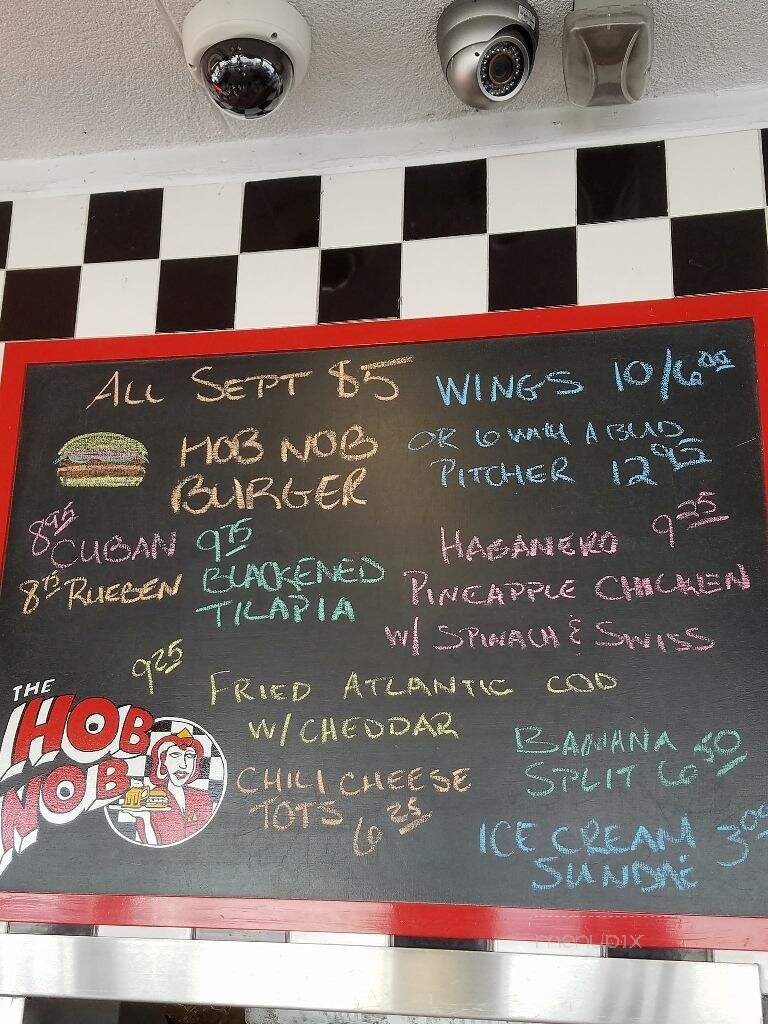 ALL SEPT $5
HOB NOB
BURGER
WINGS 10/6.00
OR 6 WITH A BUD
PITCHER 12.95
8.95 CUBAN
8.75 RUEBEN
9.75
BLACKENED
TILAPIA
HABANERO 9.25
PINEAPPLE CHICKEN
W/ SPINACH & SWISS
9.25
FRIED ATLANTIC COD
W/ CHEDDAR
THE
HOB
NOB
CHILI CHEESE
TOTS 6.25
BANANA
SPLIT 6.50
ICE CREAM 3.00
SUNDAE
menupix